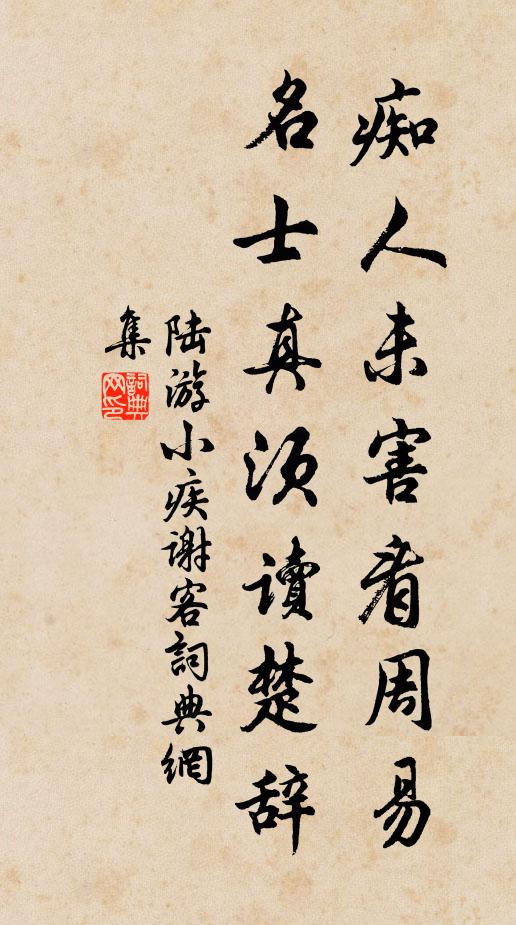 痴人未害看周易
名士真须读楚辞
陆游小疾谢客词典网
集
詞典
网印